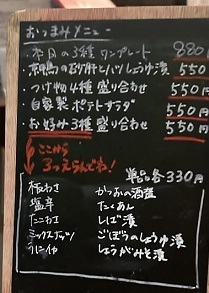 おつまみメニュー
・本日の3種ワンプレート 880円
・京鴨の砂肝とハツしょうゆ漬 550円
・つけ物4種盛り合わせ 550円
・自家製ポテトサラダ 550円
・お好み3種盛り合わせ 550円
ここから
3つえらんでね!
単品各330円
板わさ かつおの酒盗
塩辛 たくあん
たこわさ しば漬
ミックスナッツ ごぼうのしょうゆ漬
しょうがみそ漬